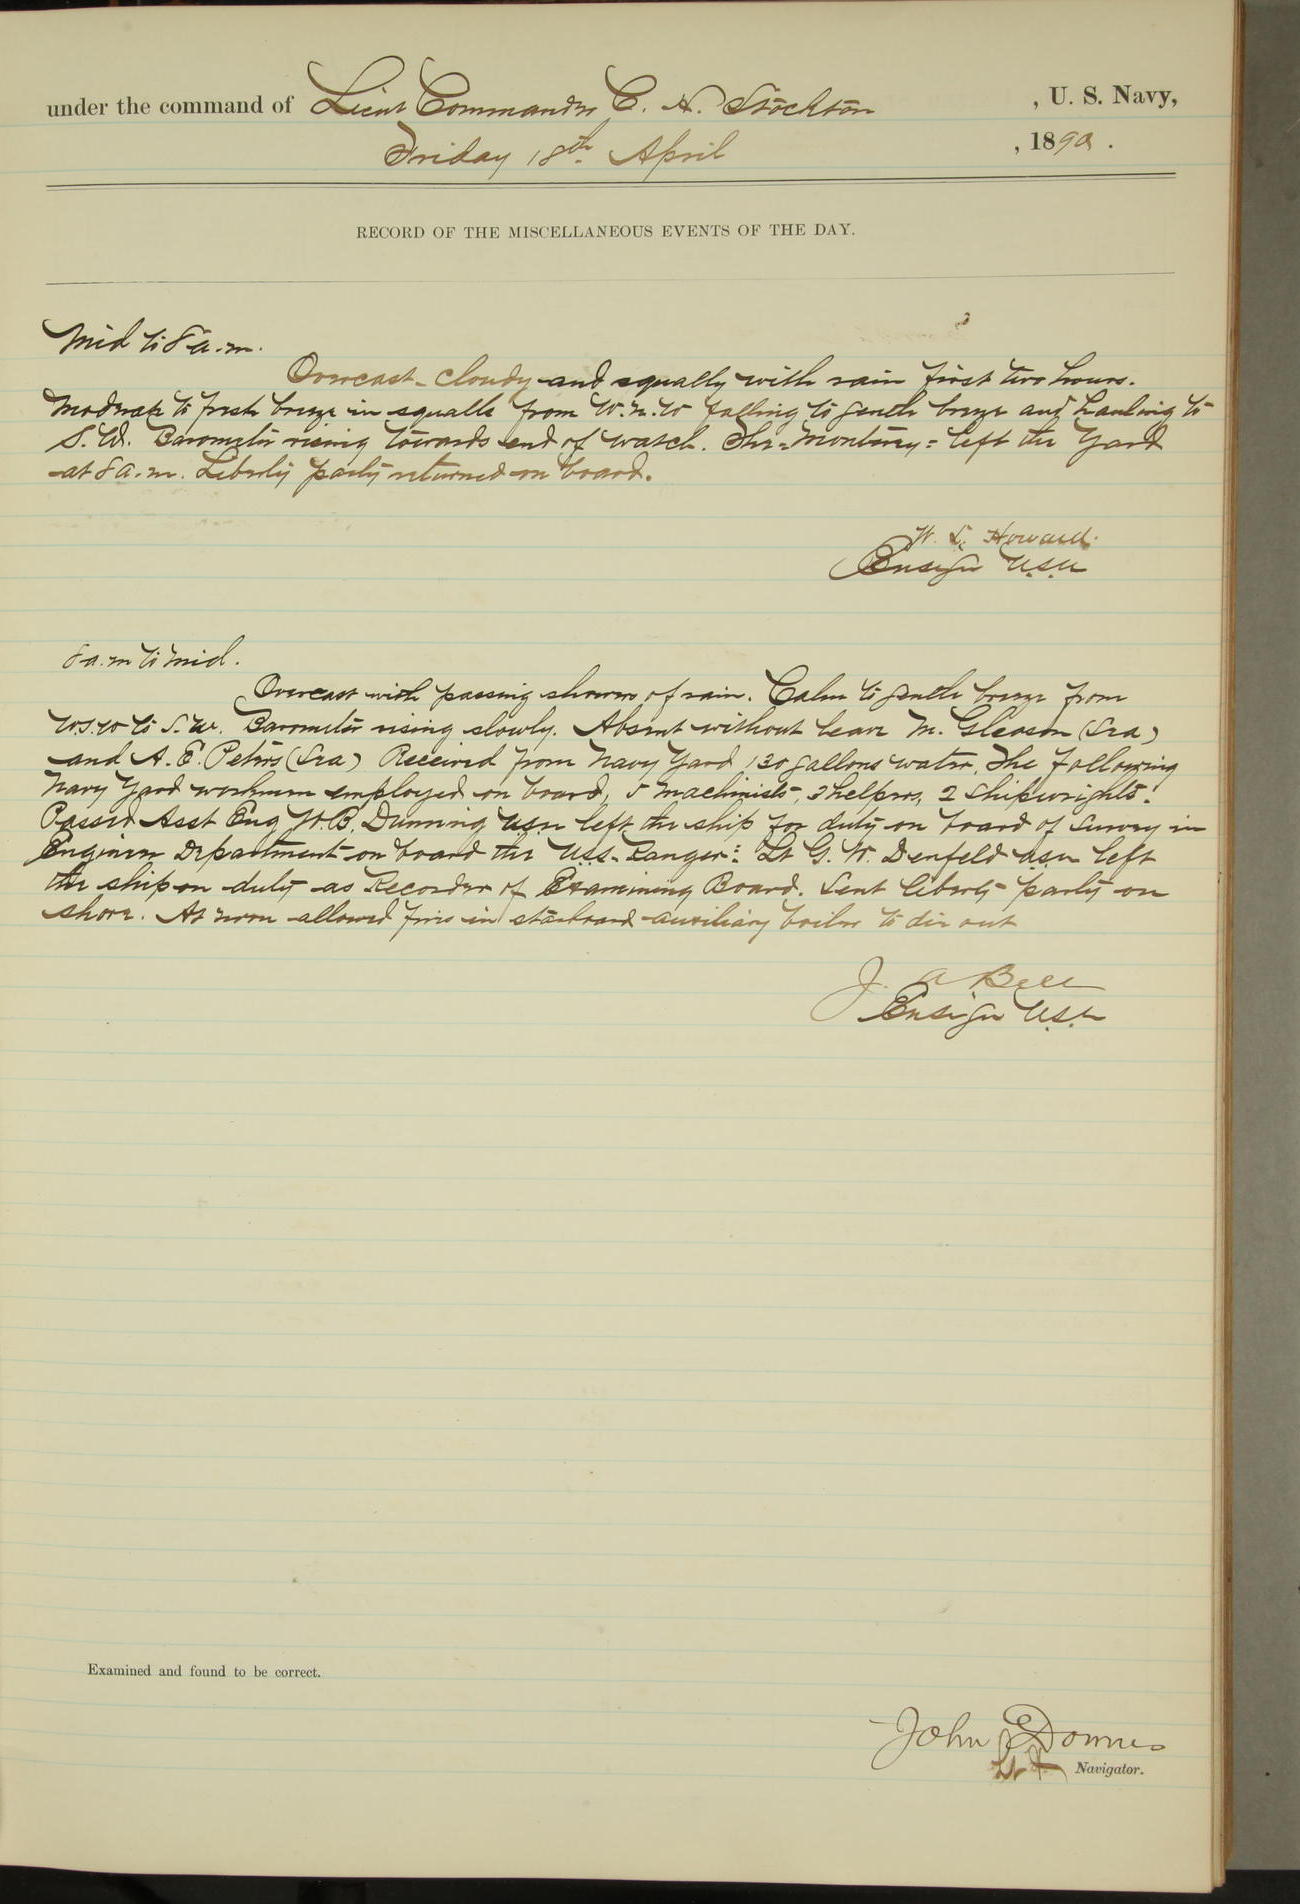 under the command of Lieut Commander C. H. Stockton , U. S. Navy,
Friday 18th April , 1890.
RECORD OF THE MISCELLANEOUS EVENTS OF THE DAY.
Mid to 8 a.m.
Overcast - cloudy and squally with rain first two hours.
Moderate to fresh breeze in squalls from W.N.W falling to gentle breeze and hauling to
S.W. Barometer rising towards end of watch. The "Monterey" left the Yard
at 8 a.m. Liberty party returned on board.
W. L. Howard.
Ensign U.S.N
8 a.m to mid.
Overcast with passing showers of rain. Calm to gentle breeze from
W.S.W to S.W. Barometer rising slowly. Absent without leave M. Gleason (Sea)
and A. E. Peters (Sea) Received from Navy Yard 130 gallons water. The following
Navy Yard workmen employed on board, 5 machinists, 3 helpers, 2 shipwrights.
Passed Asst Eng W.B. Dunning USN left the ship for duty on board of survey in
Engineer Department on board the U.S.S. Ranger: Lt G. W. Denfeld USN left
the ship on duty as Recorder of Examining Board. Sent liberty party on
shore. At noon allowed fires in starboard auxiliary boiler to die out
J. A Bell
Ensign U.S.N
Examined and found to be correct.
John Downes
Lt Navigator.